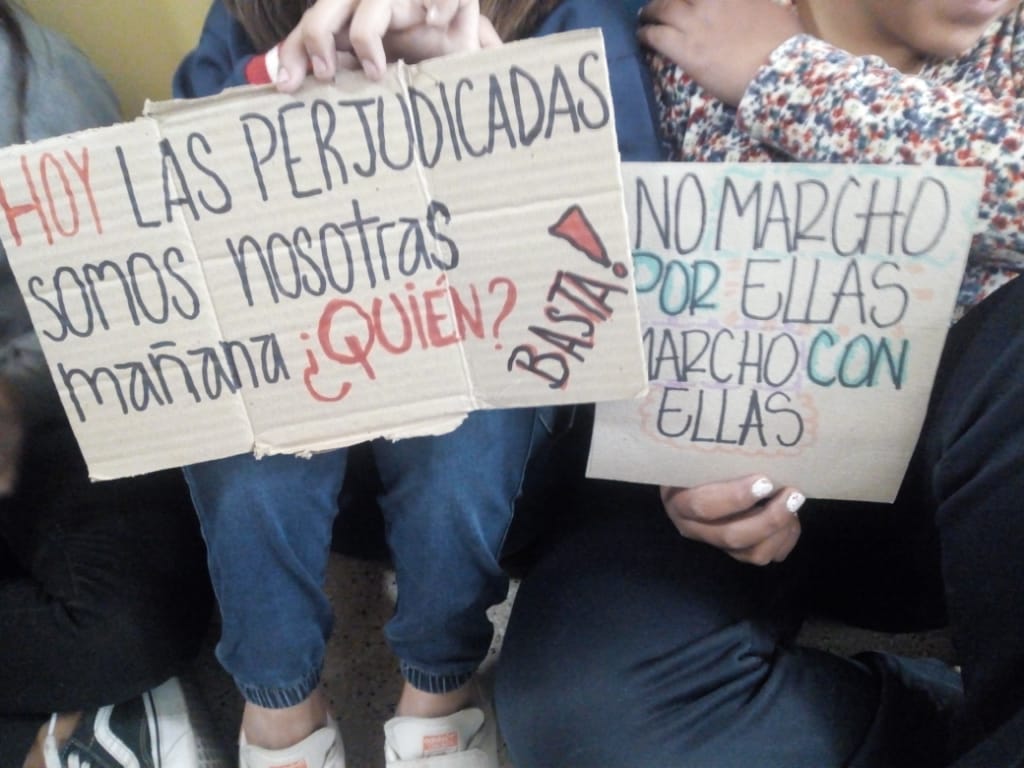 HOY LAS PERJUDICADAS
somos nosotras
mañana ¿QUIÉN?
BASTA!
NO MARCHO
POR ELLAS
MARCHO CON
ELLAS